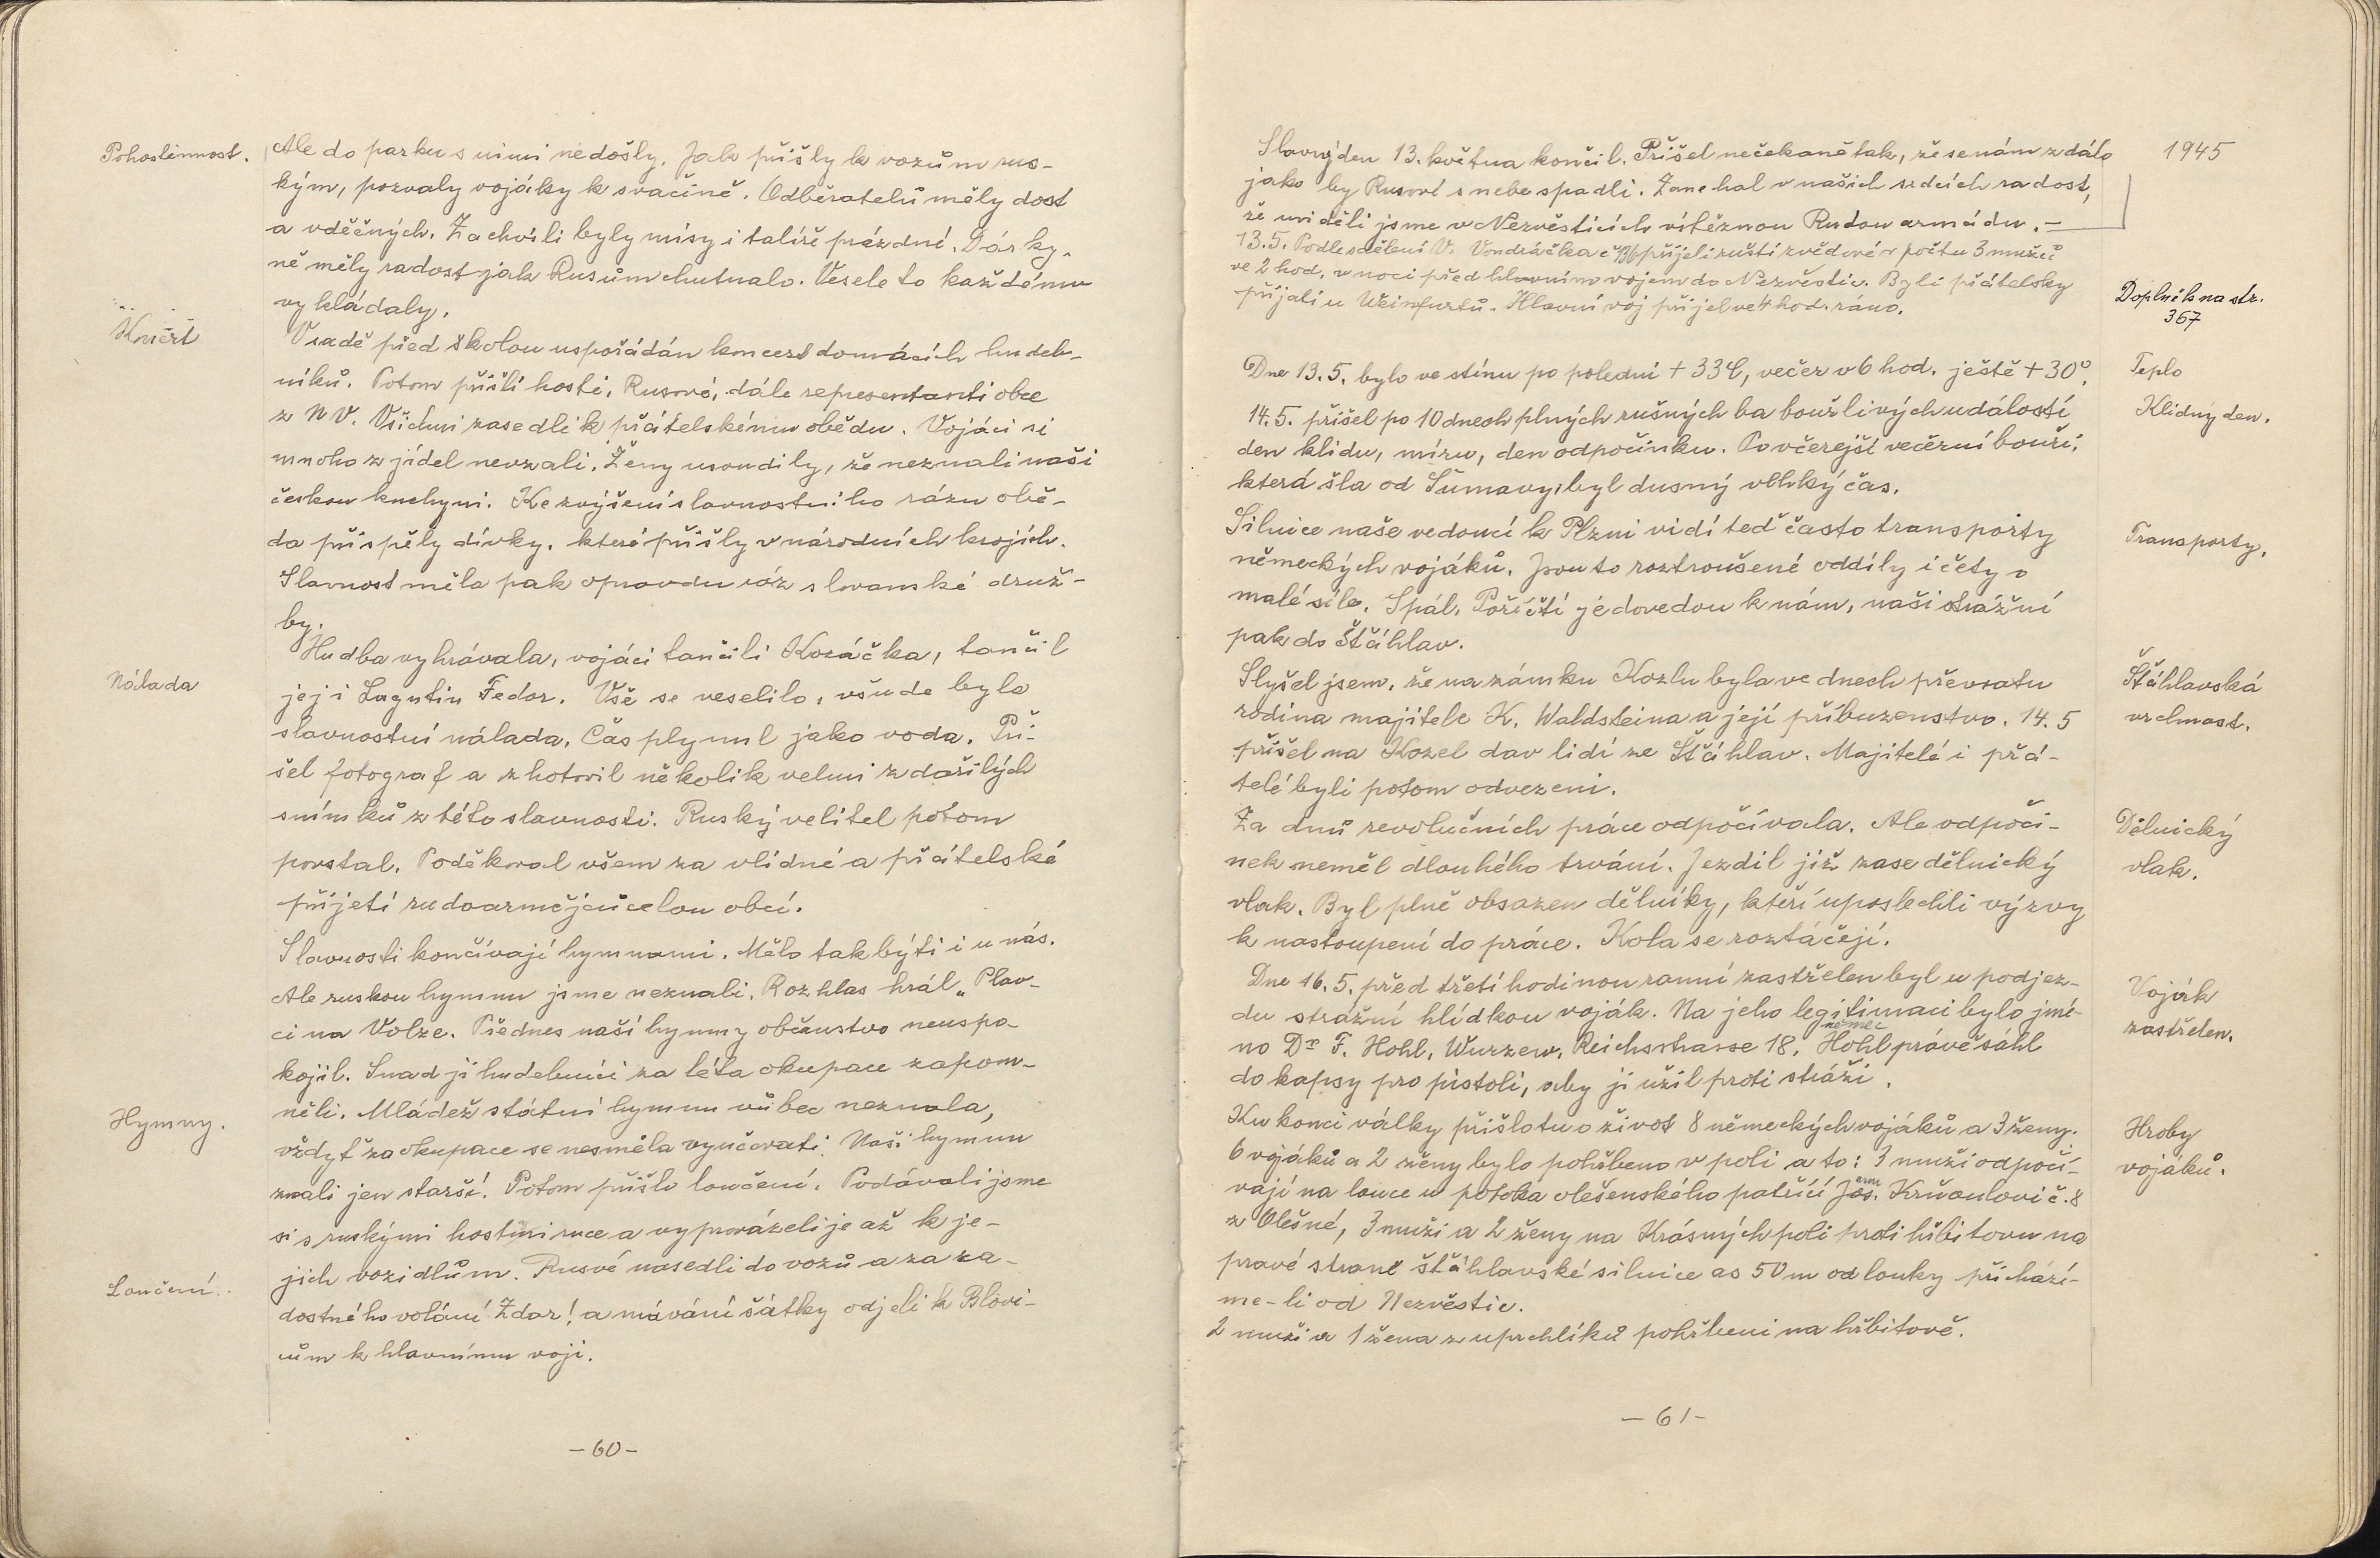 Pohostinnost.
Ale do parku s nimi nedošly. Jak přišly k vozům rus-
kým, pozvaly vojáky k svačině. Odběratelů měly dost
a vděčných. Za chvíli byly mísy i talíře prázdné. Dárky-
ně měly radost jak Rusům chutnalo. Vesele to každému
vykládaly.
V sadě před školou uspořádán koncert domácích hudeb-
níků. Potom přišli hosté, Rusové, dále representanti obce
z NV. Všichni zasedli k přátelskému obědu. Vojáci si
mnoho z jídel nevzali. Ženy usoudily, že neznali naši
českou kuchyni. Ke zvýšení slavnostního rázu obě-
da přispěly dívky, které přišly v národních krojích.
Slavnost měla pak opravdu ráz slovanské druž-
by.
Hudba vyhrávala, vojáci tančili Kozáčka, tančil
Nálada
jej i Lagutin Fedor. Vše se veselilo, všude byla
slavnostní nálada. Čas plynul jako voda. Při-
šel fotograf a zhotovil několik velmi zdařilých
snímků z této slavnosti. Ruský velitel potom
povstal. Poděkoval všem za vlídné a přátelské
přijetí rudoarmějců celou obcí.
Slavnosti končívají hymnami. Mělo tak býti i u nás.
Ale ruskou hymnu jsme neznali. Rozhlas hrál „Plav-
ci na Volze. Přednes naší hymny občanstvo neuspo-
kojil. Snad ji hudebníci za léta okupace zapom-
Hymny.
něli. Mládež státní hymnu vůbec neznala,
vždyť za okupace se nesměla vyučovati. Naši hymnu
znali jen starší. Potom přišlo loučení. Podávali jsme
si s ruskými hostmi ruce a vyprovázeli je až k je-
Loučení.
jich vozidlům. Rusvé nasedli do vozů a za ra-
dostného volání Zdar! a mávání šátky odjeli k Blovi-
cům k hlavnímu voji.
-60-
1945
Slavný den 13. května končil. Přišel nečekaně tak, že se nám zdálo
jako by Rusové s nebe spadli. Zanechal v našich srdcích radost,
že uviděli jsme v Nezvěsticích vítěznou Rudou armádu.-
13.5. Podle sdělení V. Vondráčka přijeli ruští zvědové v počtu 3 mužů
ve 2 hod. v noci před hlavním vojem do Nezvěstic. Byli přátelsky
přijati u Weinfurtů. Hlavní voj přijel ve 4 hod. ráno.
Doplněk na str.
367
Dne 13.5. bylo ve stínu po poledni + 33C, večer v 6 hod. ještě + 30°.
Teplo
14.5. přišel po 10 dnech plných rušných ba bouřlivých událostí
Klidný den.
den klidu, míru, den odpočinku. Po včerejší večerní bouři,
která šla od Šumavy, byl dusný vlhký čas.
Silnice naše vedoucí k Plzni vidí teď často transporty
Transporty.
německých vojáků. Jsou to roztroušené oddíly i čety o
malé síle. Spál. Poříčtí je dovedou k nám, naši strážní
pak do Štáhlav.
Slyšel jsem, že na zámku Kozlu byla ve dnech převratu
Štáhlavská
rodina majitele K. Waldsteina a její příbuzenstvo. 14.5
vrchnost.
přišel na Kozel dav lidí ze Štáhlav. Majitelé i přá-
telé byli potom odvezeni.
Za dnů revolučních práce odpočívala. Ale odpoči-
Dělnický
nek neměl dlouhého trvání. Jezdil již zase dělnický
vlak.
vlak. Byl plně obsazen dělníky, kteří uposlechli výzvy
k nastoupení do práce. Kola se roztáčejí.
Dne 16.5. před třetí hodinou ranní zastřelen byl u podjez-
Voják
du strážní hlídkou voják. Na jeho legitimaci bylo jmé-
zastřelen.
němec
no Dr F. Hohl, Wurzew, Reichsstrasse 18. Hohl právě sáhl
do kapsy pro pistoli, aby jí užil proti stráži.
Ku konci války přišlo tu o život 8 německých vojáků a 3 ženy.
Hroby
6 vojáků a 2 ženy bylo pohřbeno v poli a to: 3 muži odpočí-
vojáků.
vají na louce u potoka olešenského patřící Jos. Krňoulovi č. 8
z Olešné, 3 muži a 2 ženy na Krásných poli proti hřbitovu na
pravé straně štáhlavské silnice as 50 m od louky přichází-
me-li od Nezvěstic.
2 muži a 1 žena z uprchlíků pohřbeni na hřbitově.
-61-